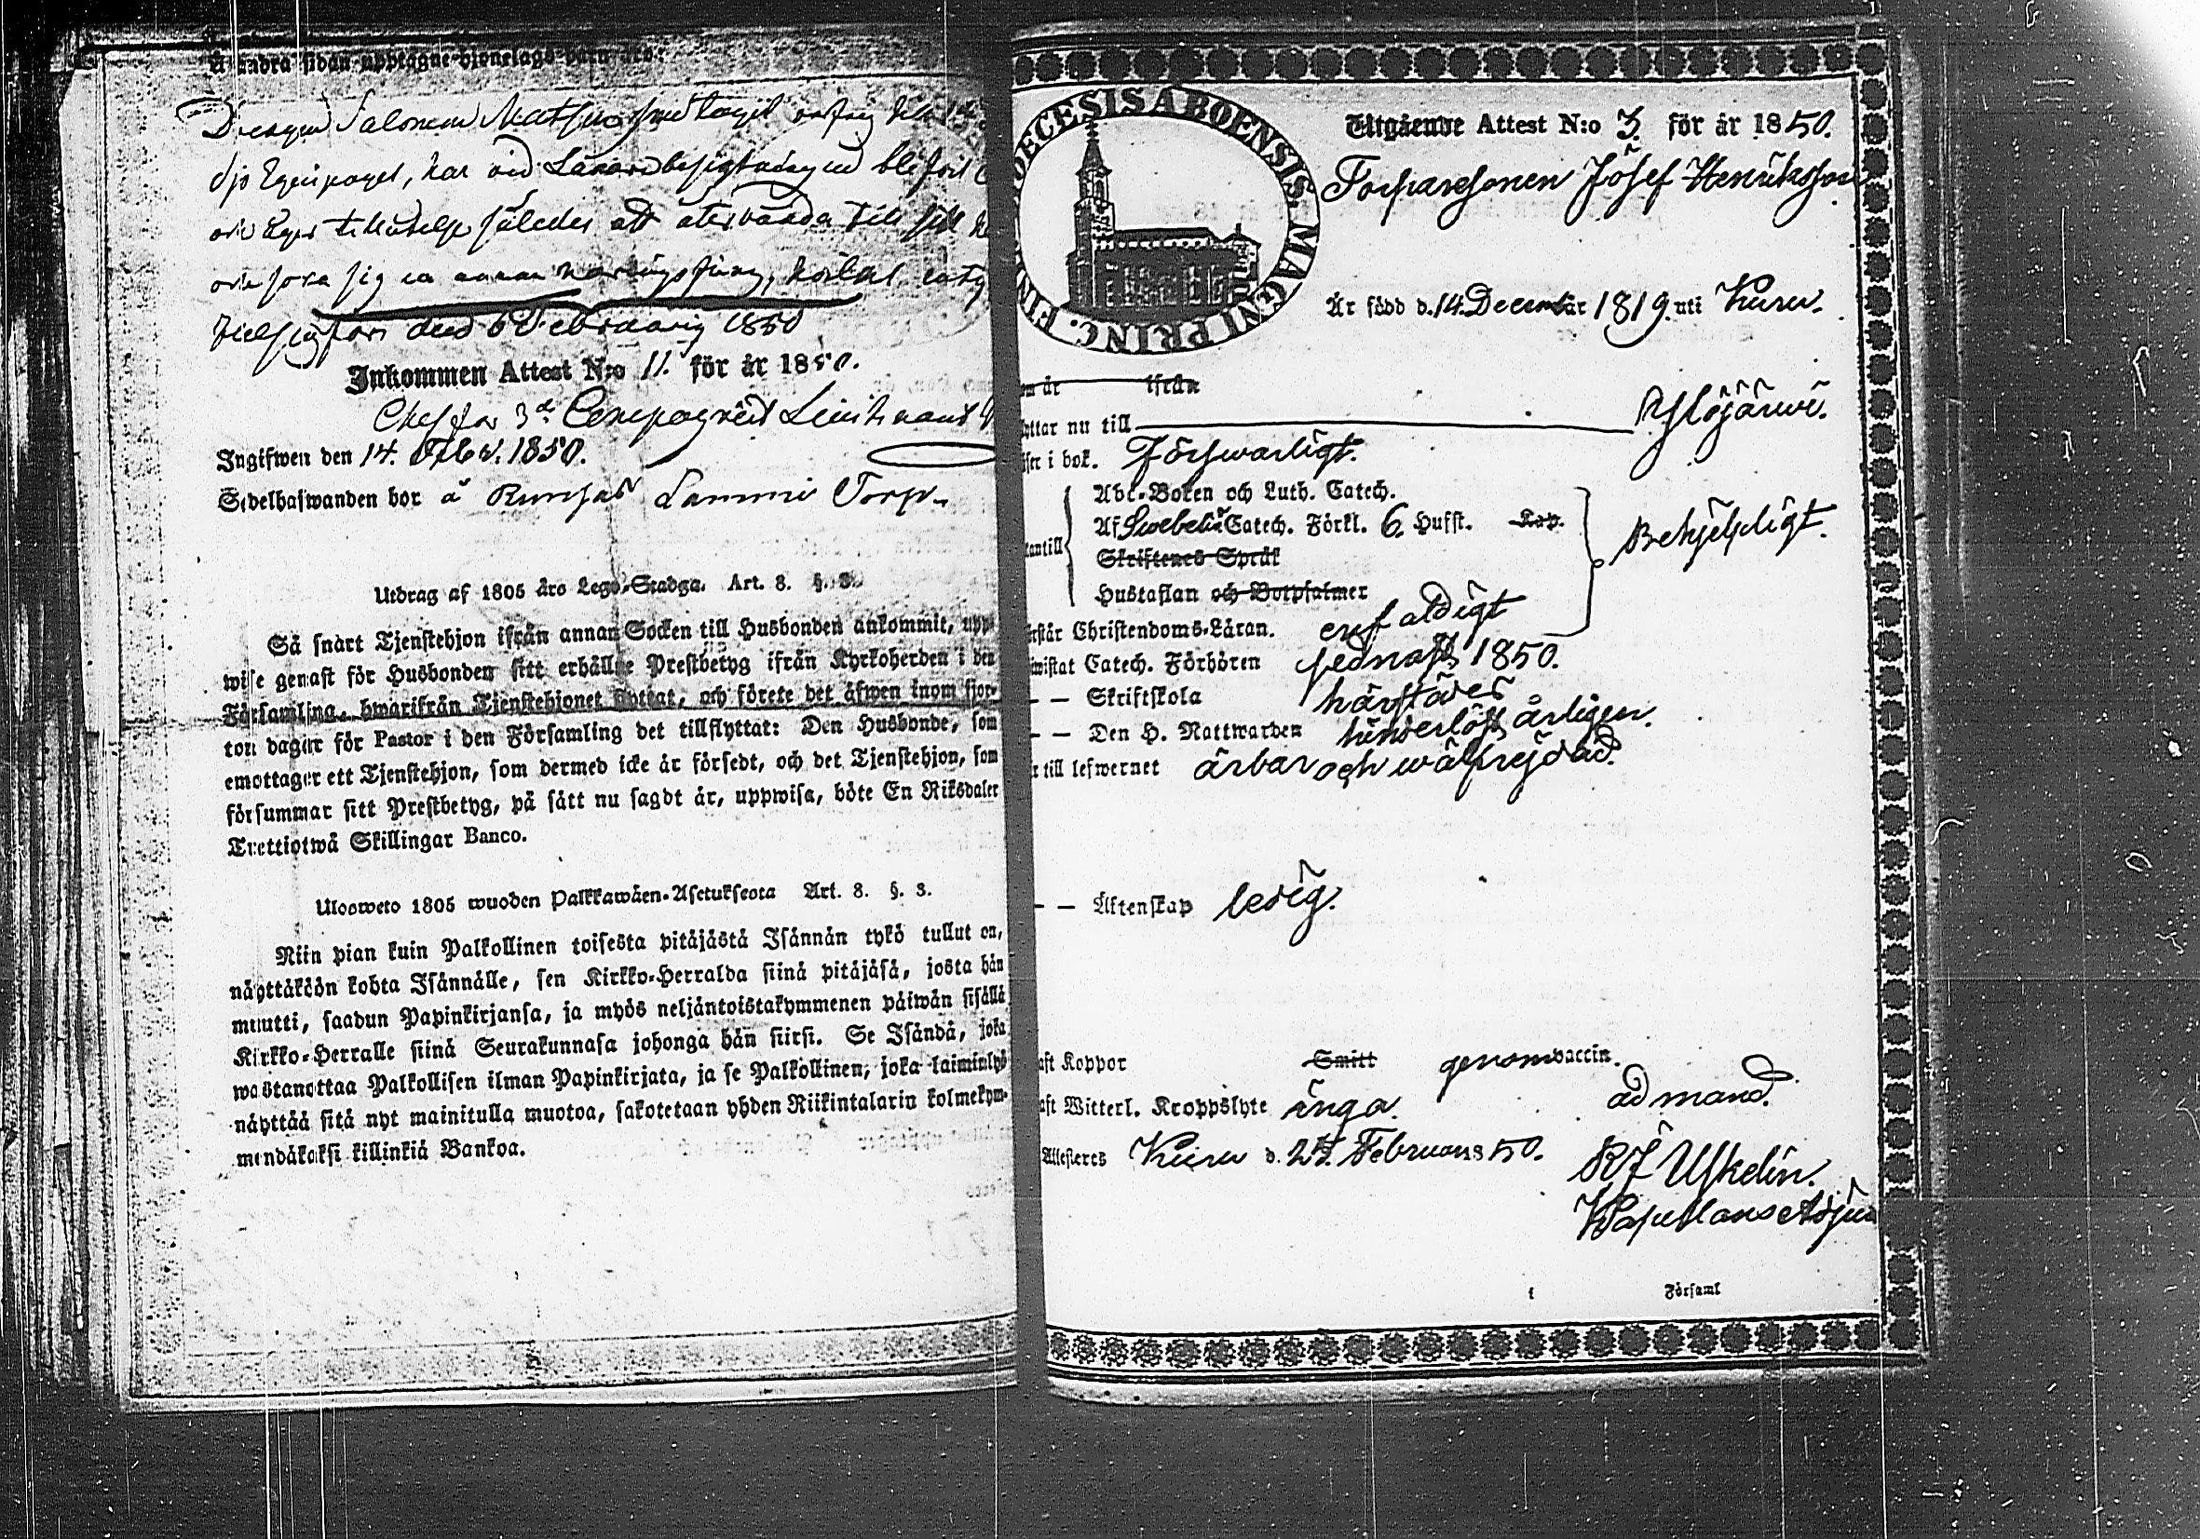 Å andra sidan upptagne hjonelags barn äro:
Drengen Salomon Matsson som tagit
Sjö Equipaget, har vid Läkarebesigtningen blifvit
att återvända till sitt
annan näringsfång,
Helsingfors den 6 Februarii 1850
Inkommen Attest N:o 11. för år 1850.
Chef för 3de Compagniet Lieutenant
Ingifwen den 14. Febr. 1850.
Sedelhafwanden bor å Runsas Lammi Torp.
Utdrag af 1805 års Lego-Stadga. Art. 8. §. 3.
Så snart Tjenstehjon ifrån annan Socken till Husbonden ankommit, upp-
wise genast för Husbonden sitt erhållne Prestbetyg ifrån Kyrkoherden i den
Församling, hwarifrån Tjenstehjonet flyttat, och förete det äfwen inom fjor-
ton dagar för Pastor i den Församling det tillflyttat: Den Husbonde, som
emottager ett Tjenstehjon, som dermed icke är försedt, och det Tjenstehjon, som
försummar sitt Prestbetyg, på sätt nu sagdt är, uppwisa, böte En Riksdaler
Trettiotwå Skillingar Banco.
Ulosweto 1805 wuoden Palkkawäen-Asetuksesta Art. 8. §. 3.
Niin pian kuin Palkollinen toisesta pitäjästä Isännän tykö tullut on,
näyttäköön kohta Isännälle, sen Kirkko-Herralda siinä pitäjäsä, josta hän
muutti, saadun Papinkirjansa, ja myös neljäntoistakymmenen päiwän sisällä
Kirkko-Herralle siinä Seurakunnasa johonga hän siirsi. Se Isändä, joka
wastanottaa Palkollisen ilman Papinkirjata, ja se Palkollinen, joka laiminlyö
näyttää sitä nyt mainitulla muotoa, sakotetaan yhden Riikintalarin kolmekym-
mendäkaksi killinkiä Bankoa.
DIOECESIS ABOENSIS. MAGNI PRINC. FIN
Utgående Attest N:o 3. för år 1850.
Torparesonen Josef Henriksson
Är född d. 14. December 1819. uti Kuru.
om år ifrån
yttar nu till Ylöjärwi.
äser i bok. Förswarligt.
Abc-Boken och Luth. Catech.
Af Swebelii Catech. Förkl. 6. Hufst. Kap.
utantill
Skriftenes Språk
Hustaflan och Botpsalmer
Behjelpligt.
rstår Christendoms-Läran. enfaldigt
wistat Catech. Förhören sednast 1850.
— — Skriftskola härstädes
— — Den H. Nattwarden hinderlöst årligen.
r till lefwernet ärbar och wälfrejdad.
— — Äktenskap ledig.
aft Koppor Smitt genom vaccin.
aft Witterl. Kroppslyte inga.
Attesteres Kuru d. 27. Februarii 50.
ad mand.
RJ Uskelin.
Kapellans Adju
Församl